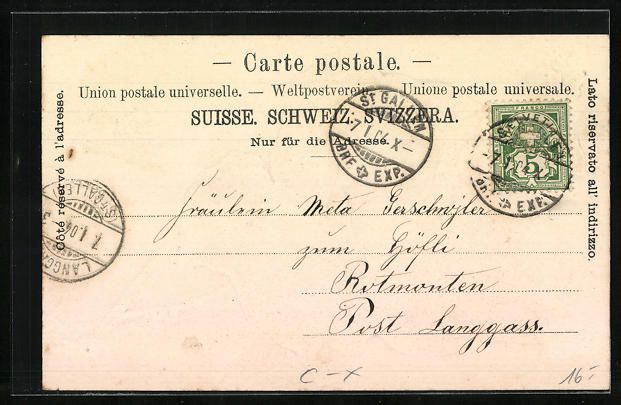 — Carte postale. —
Union postale universelle. — Weltpostverein. — Unione postale universale.
SUISSE. SCHWEIZ. SVIZZERA.
Nur für die Adresse.
Côté réservé à l'adresse.
Lato riservato all' indirizzo.
ST GALLEN
7 I 04 X
BHF EXP.
FRANCO
5
ST GALLEN
EXP.
ST. GALLEN
7. I. 04
LANGG
Fräulein Meta
zum Höfli
Rotmonten
Post Langgass.
C-X
16.-